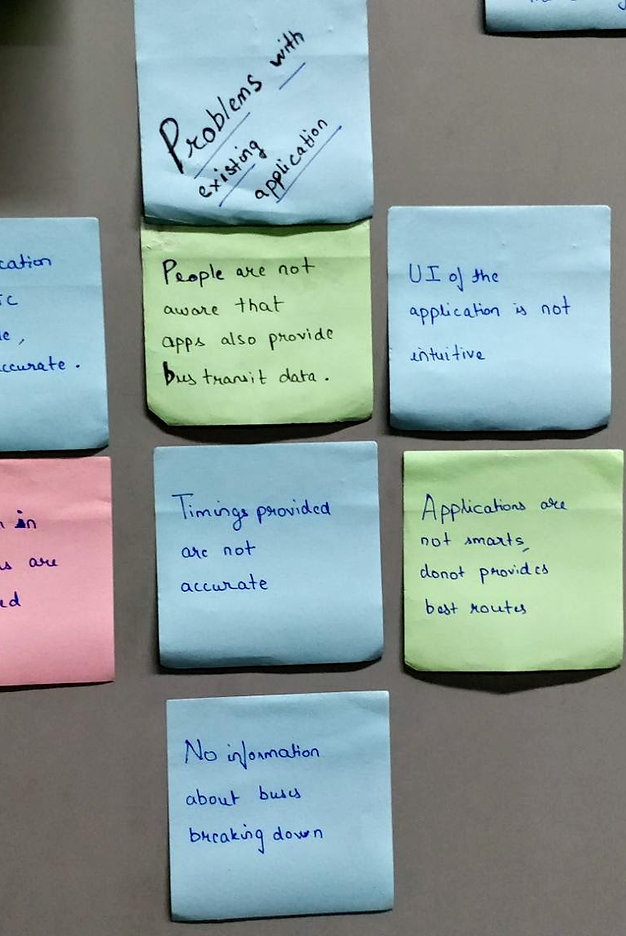 Problems with
existing
application
People are not
aware that
apps also provide
bus transit data.
UI of the
application is not
intuitive
accurate.
in
are
Timings provided
are not
accurate
Applications are
not smarts,
donot provides
best routes
No information
about buses
breaking down